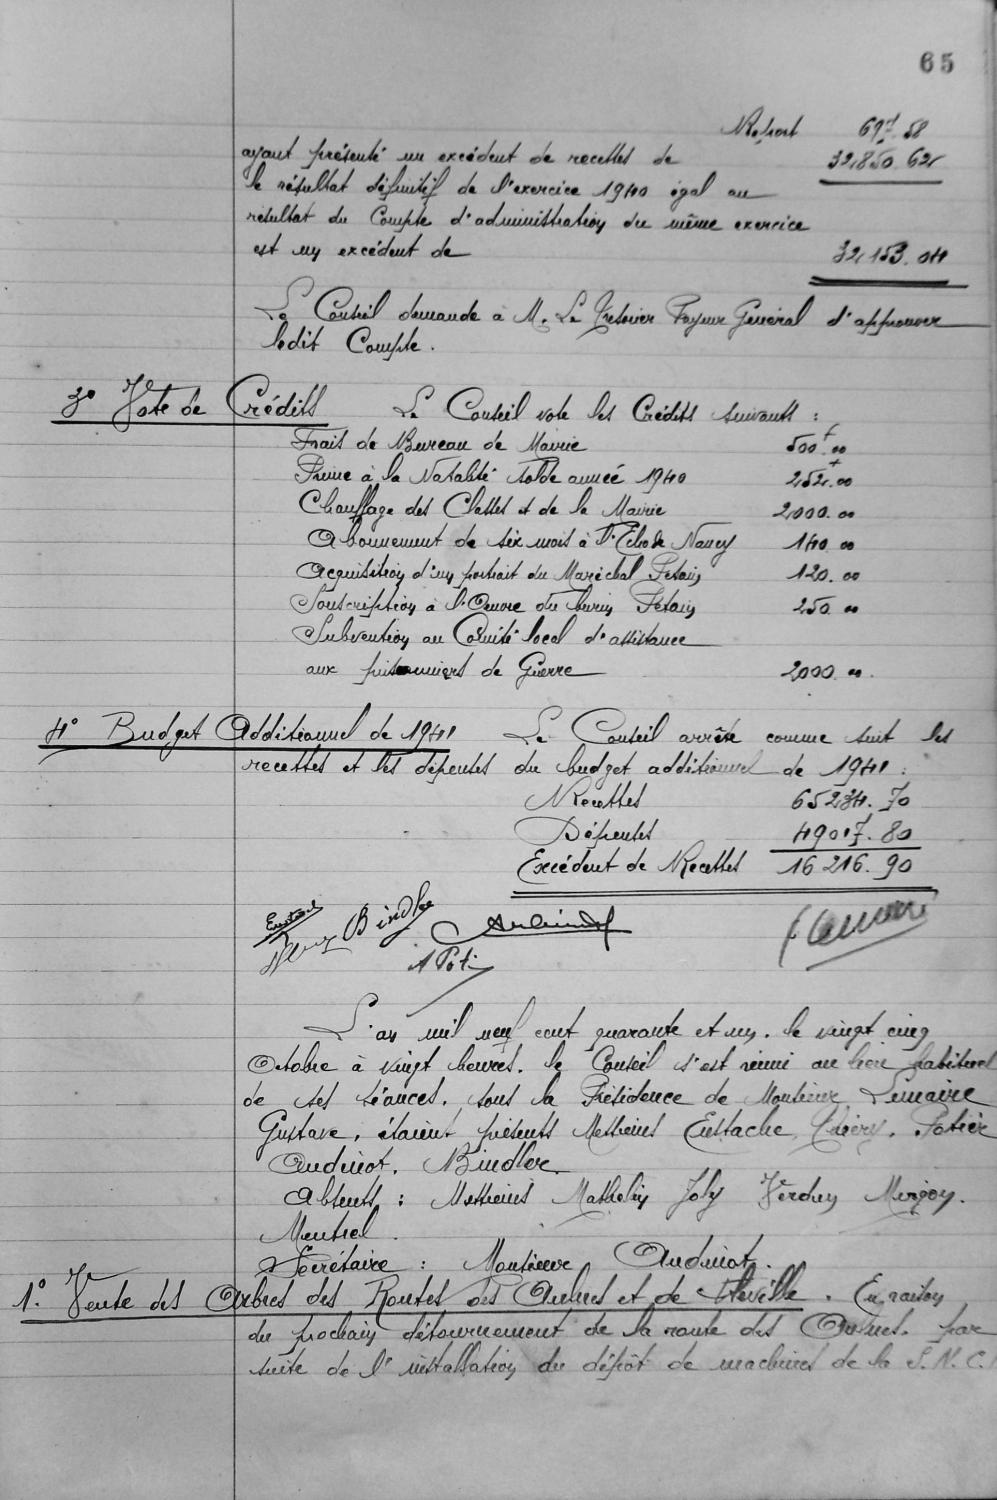 65
Report 697.58
ayant présenté un excédent de recettes de 32.850.62
le résultat définitif de l'exercice 1940 égal au
résultat du Compte d'administration du même exercice
est un excédent de 32.153.04
Le Conseil demande à M. Le Trésorier Payeur Général d'approuver
ledit Compte.
3° Vote de Crédits Le Conseil vote les Crédits suivants :
Frais de Bureau de Mairie 500.00
Prime à la Natalité solde année 1940 252.00
Chauffage des Classes et de la Mairie 2000.00
Abonnement de six mois à l'Echo de Nancy 140.00
Acquisition d'un portrait du Maréchal Pétain 120.00
Souscription à l'Oeuvre du Pétain 250.00
Subvention au Comité local d'assistance
aux prisonniers de Guerre 2000.00.
4° Budget Additionnel de 1941 Le Conseil arrête comme suit les
recettes et les dépenses du budget additionnel de 1941 :
Recettes 65234.70
Dépenses 49017.80
Excédent de Recettes 16216.90
Bindler
A Poti
L'an mil neuf cent quarante et un. le vingt cinq
Octobre à vingt heures. le Conseil s'est réuni au lieu habituel
de ses séances. sous la Présidence de Monsieur Lemaire
Gustave. étaient présents Messieurs Eustache, Thiéry. Potier
Audinot. Bindler.
Absents : Messieurs Mathelin Joly Verdun
Mentrel.
Secrétaire : Monsieur Audinot.
1°. Vente des Arbres des Routes des Aulnes et de Fléville. En raison
du prochain détournement de la route des Aulnes. par
suite de l'installation du dépôt de machines de la S.N.C.